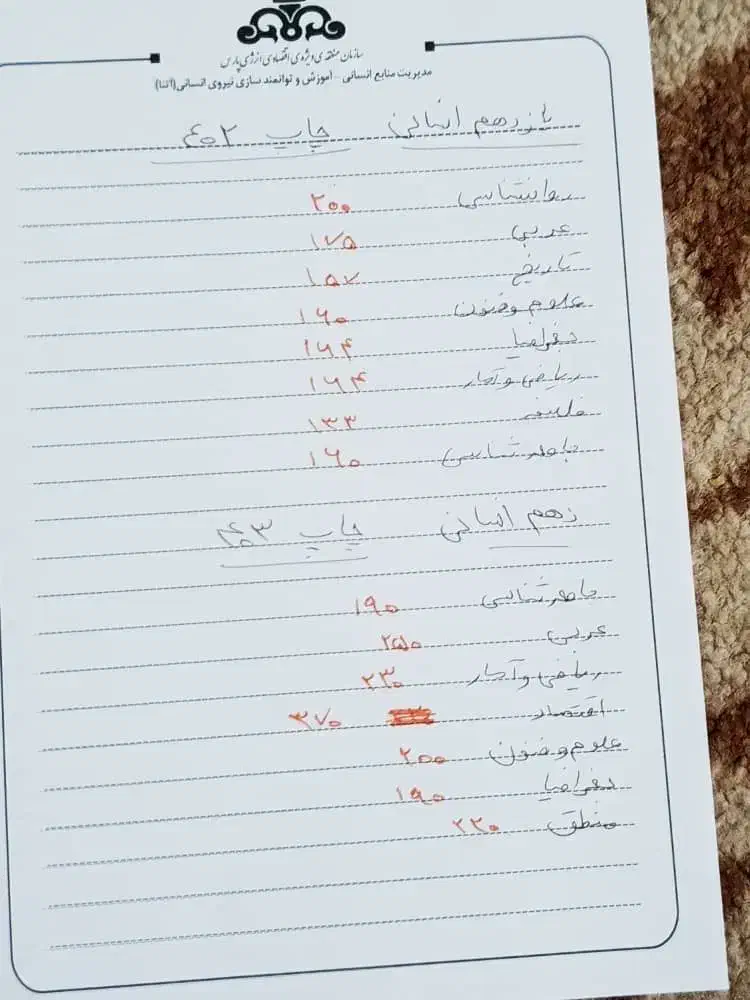 سازمان منطقه‌ی ویژه‌ی اقتصادی انرژی پارس
مدیریت منابع انسانی - آموزش و توانمند سازی نیروی انسانی (آتنا)
یازدهم انسانی چاپ ۴۰۲
روانشناسی ۲۰۰
عربی ۱۷۵
تاریخ ۱۵۷
علوم و فنون ۱۶۰
جغرافیا ۱۶۴
ریاضی و آمار ۱۶۴
فلسفه ۱۳۳
جامعه شناسی ۱۶۰
دهم انسانی چاپ ۴۰۳
جامعه شناسی ۱۹۰
عربی ۲۵۰
ریاضی و آمار ۲۳۰
اقتصاد ۳۷۰
علوم و فنون ۲۰۰
جغرافیا ۱۹۰
منطق ۲۲۰